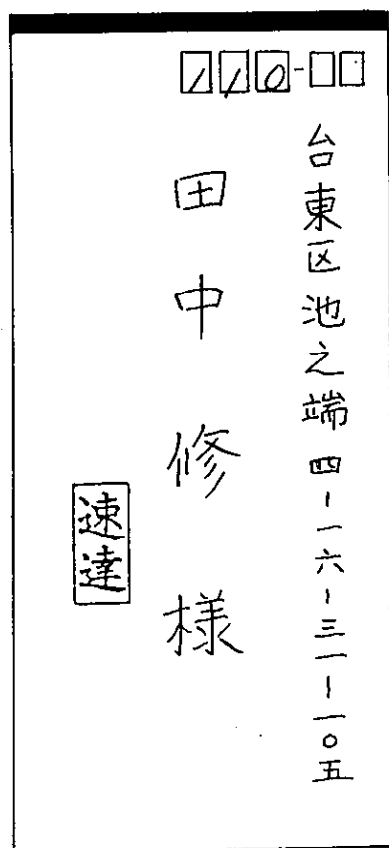 110-
台東区池之端四-一六-三一-一〇五
田中修様
速達